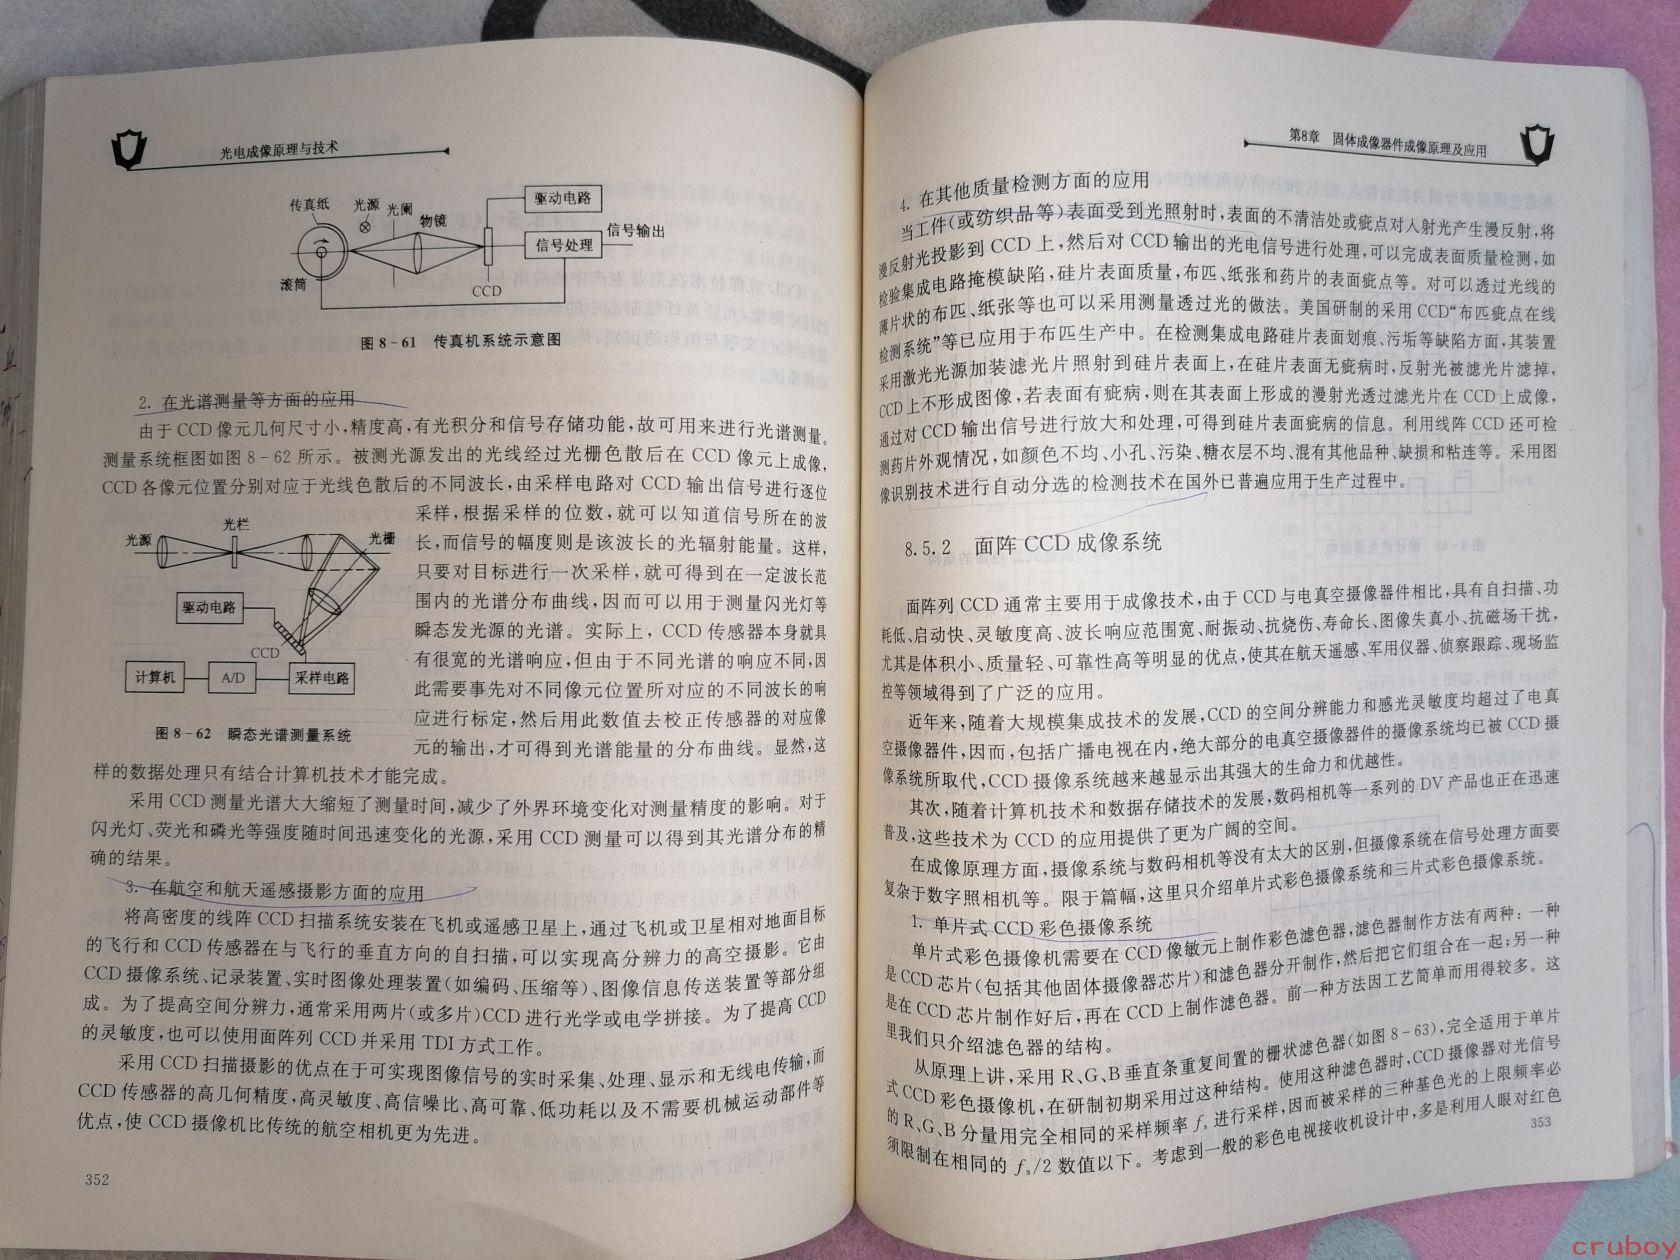 光电成像原理与技术
传真纸
光源
光阑
物镜
驱动电路
信号处理
信号输出
滚筒
CCD
图8-61 传真机系统示意图
2. 在光谱测量等方面的应用
由于CCD像元几何尺寸小,精度高,有光积分和信号存储功能,故可用来进行光谱测量。
测量系统框图如图8-62所示。被测光源发出的光线经过光栅色散后在CCD像元上成像,
CCD各像元位置分别对应于光线色散后的不同波长,由采样电路对CCD输出信号进行逐位
采样,根据采样的位数,就可以知道信号所在的波
长,而信号的幅度则是该波长的光辐射能量。这样,
只要对目标进行一次采样,就可得到在一定波长范
围内的光谱分布曲线,因而可以用于测量闪光灯等
瞬态发光源的光谱。实际上,CCD传感器本身就具
有很宽的光谱响应,但由于不同光谱的响应不同,因
此需要事先对不同像元位置所对应的不同波长的响
应进行标定,然后用此数值去校正传感器的对应像
元的输出,才可得到光谱能量的分布曲线。显然,这
光源
光栏
光栅
驱动电路
CCD
计算机
A/D
采样电路
图8-62 瞬态光谱测量系统
样的数据处理只有结合计算机技术才能完成。
采用CCD测量光谱大大缩短了测量时间,减少了外界环境变化对测量精度的影响。对于
闪光灯、荧光和磷光等强度随时间迅速变化的光源,采用CCD测量可以得到其光谱分布的精
确的结果。
3. 在航空和航天遥感摄影方面的应用
将高密度的线阵CCD扫描系统安装在飞机或遥感卫星上,通过飞机或卫星相对地面目标
的飞行和CCD传感器在与飞行的垂直方向的自扫描,可以实现高分辨力的高空摄影。它由
CCD摄像系统、记录装置、实时图像处理装置(如编码、压缩等)、图像信息传送装置等部分组
成。为了提高空间分辨力,通常采用两片(或多片)CCD进行光学或电学拼接。为了提高CCD
的灵敏度,也可以使用面阵列CCD并采用TDI方式工作。
采用CCD扫描摄影的优点在于可实现图像信号的实时采集、处理、显示和无线电传输,而
CCD传感器的高几何精度,高灵敏度、高信噪比、高可靠、低功耗以及不需要机械运动部件等
优点,使CCD摄像机比传统的航空相机更为先进。
352
第8章 固体成像器件成像原理及应用
4. 在其他质量检测方面的应用
当工件(或纺织品等)表面受到光照射时,表面的不清洁处或疵点对入射光产生漫反射,将
漫反射光投影到CCD上,然后对CCD输出的光电信号进行处理,可以完成表面质量检测,如
检验集成电路掩模缺陷,硅片表面质量,布匹、纸张和药片的表面疵点等。对可以透过光线的
薄片状的布匹、纸张等也可以采用测量透过光的做法。美国研制的采用CCD“布匹疵点在线
检测系统”等已应用于布匹生产中。在检测集成电路硅片表面划痕、污垢等缺陷方面,其装置
采用激光光源加装滤光片照射到硅片表面上,在硅片表面无疵病时,反射光被滤光片滤掉,
CCD上不形成图像,若表面有疵病,则在其表面上形成的漫射光透过滤光片在CCD上成像,
通过对CCD输出信号进行放大和处理,可得到硅片表面疵病的信息。利用线阵CCD还可检
测药片外观情况,如颜色不均、小孔、污染、糖衣层不均、混有其他品种、缺损和粘连等。采用图
像识别技术进行自动分选的检测技术在国外已普遍应用于生产过程中。
8.5.2 面阵CCD成像系统
面阵列CCD通常主要用于成像技术,由于CCD与电真空摄像器件相比,具有自扫描、功
耗低、启动快、灵敏度高、波长响应范围宽、耐振动、抗烧伤、寿命长、图像失真小、抗磁场干扰,
尤其是体积小、质量轻、可靠性高等明显的优点,使其在航天遥感、军用仪器、侦察跟踪、现场监
控等领域得到了广泛的应用。
近年来,随着大规模集成技术的发展,CCD的空间分辨能力和感光灵敏度均超过了电真
空摄像器件,因而,包括广播电视在内,绝大部分的电真空摄像器件的摄像系统均已被CCD摄
像系统所取代,CCD摄像系统越来越显示出其强大的生命力和优越性。
其次,随着计算机技术和数据存储技术的发展,数码相机等一系列的DV产品也正在迅速
普及,这些技术为CCD的应用提供了更为广阔的空间。
在成像原理方面,摄像系统与数码相机等没有太大的区别,但摄像系统在信号处理方面要
复杂于数字照相机等。限于篇幅,这里只介绍单片式彩色摄像系统和三片式彩色摄像系统。
1. 单片式CCD彩色摄像系统
单片式彩色摄像机需要在CCD像敏元上制作彩色滤色器,滤色器制作方法有两种:一种
是CCD芯片(包括其他固体摄像器芯片)和滤色器分开制作,然后把它们组合在一起;另一种
是在CCD芯片制作好后,再在CCD上制作滤色器。前一种方法因工艺简单而用得较多。这
里我们只介绍滤色器的结构。
从原理上讲,采用R、G、B垂直条重复间置的栅状滤色器(如图8-63),完全适用于单片
式CCD彩色摄像机,在研制初期采用过这种结构。使用这种滤色器时,CCD摄像器对光信号
的R、G、B分量用完全相同的采样频率fs进行采样,因而被采样的三种基色光的上限频率必
须限制在相同的fs/2数值以下。考虑到一般的彩色电视接收机设计中,多是利用人眼对红色
353
cruboy